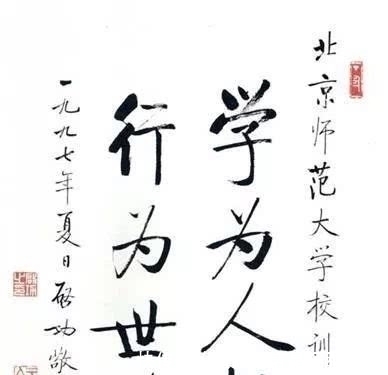 北京师范大学校训
学为人
行为世
一九九七年夏日启功敬